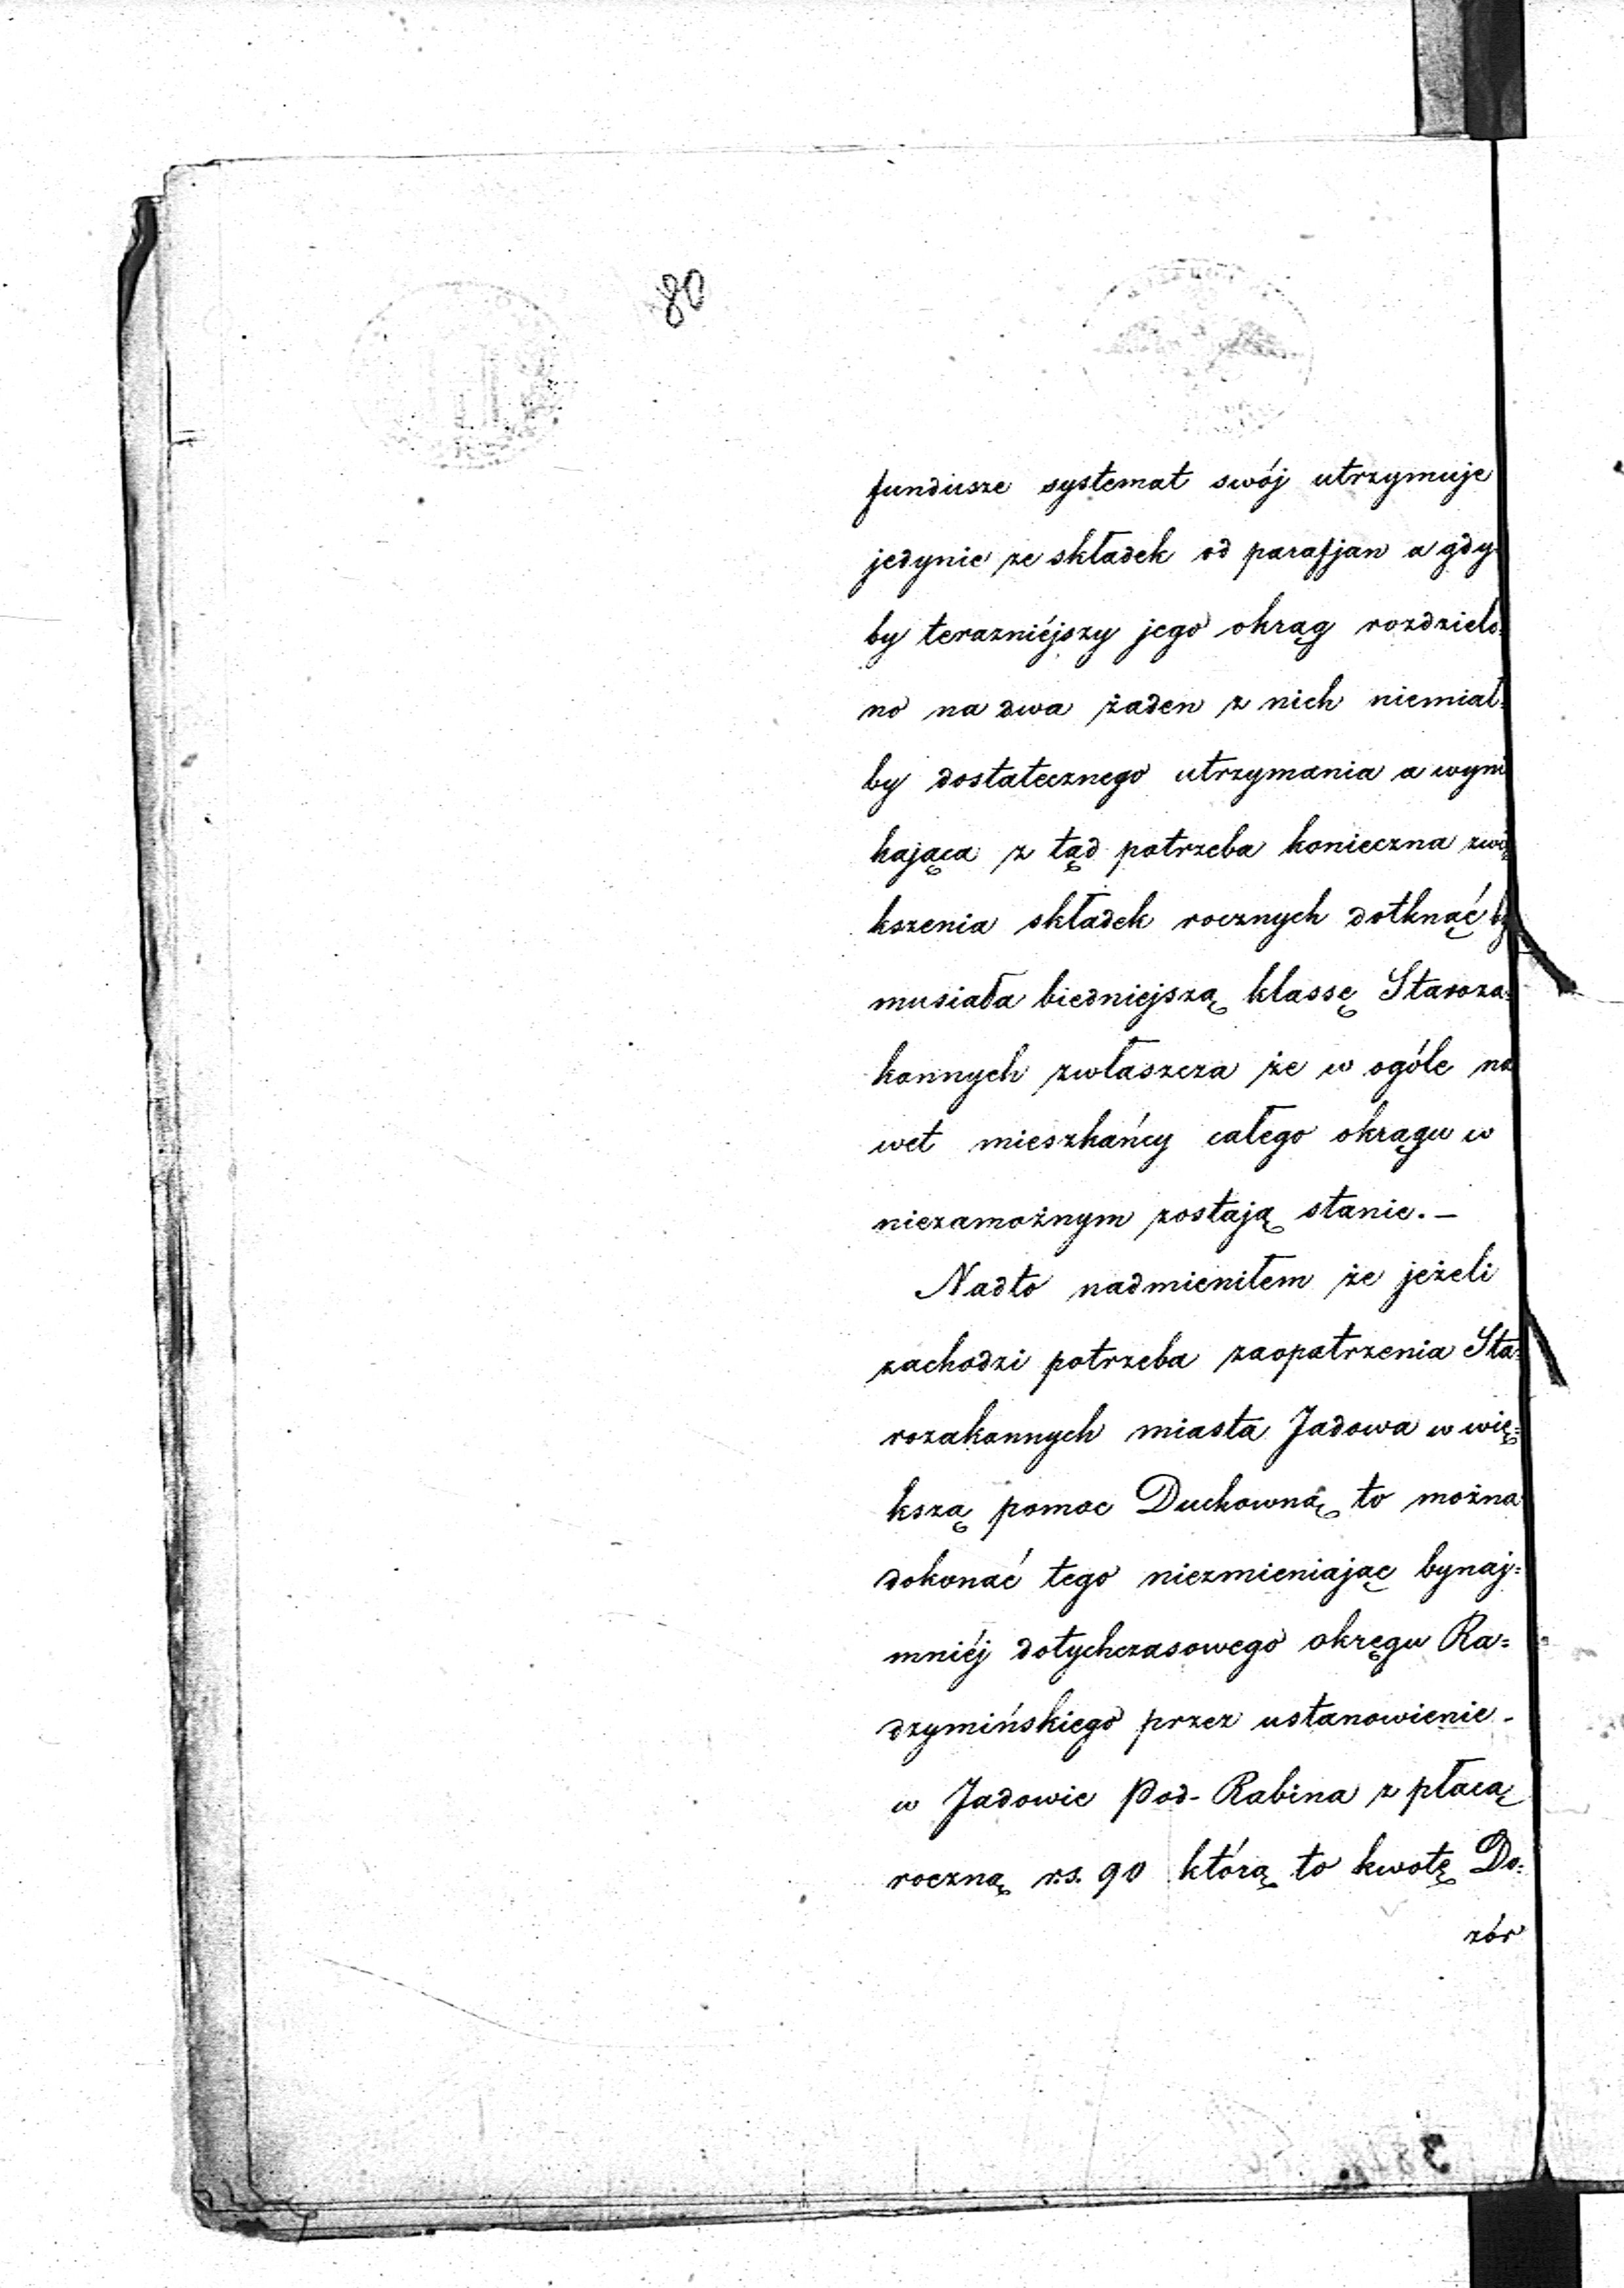 80
fundusze systemat swój utrzymuje
jedynie ze składek od parafjan a gdy
by terazniéjszy jego okrąg rozdzielo=
no na dwa żaden z nich niemiał=
by dostatecznego utrzymania a wyni
kająca z tąd potrzeba konieczna zwię
kszenia składek rocznych dotknąć by
musiała biedniejszą klassę Staroza=
konnych zwłaszcza że w ogóle na
wet mieszkańcy całego okrągu w
niezamożnym zostają stanie.—
Nadto nadmieniłem że jeżeli
zachodzi potrzeba zaopatrzenia Sta=
rozakonnych miasta Jadowa w wię=
kszą pomoc Duchowną to można
dokonać tego niezmieniając bynaj=
mniéj dotychczasowego okręgu Ra=
dzymińskiego przez ustanowienie -
w Jadowie Pod-Rabina z płacą
roczną r.s. 90 którą to kwotę Do=
zór